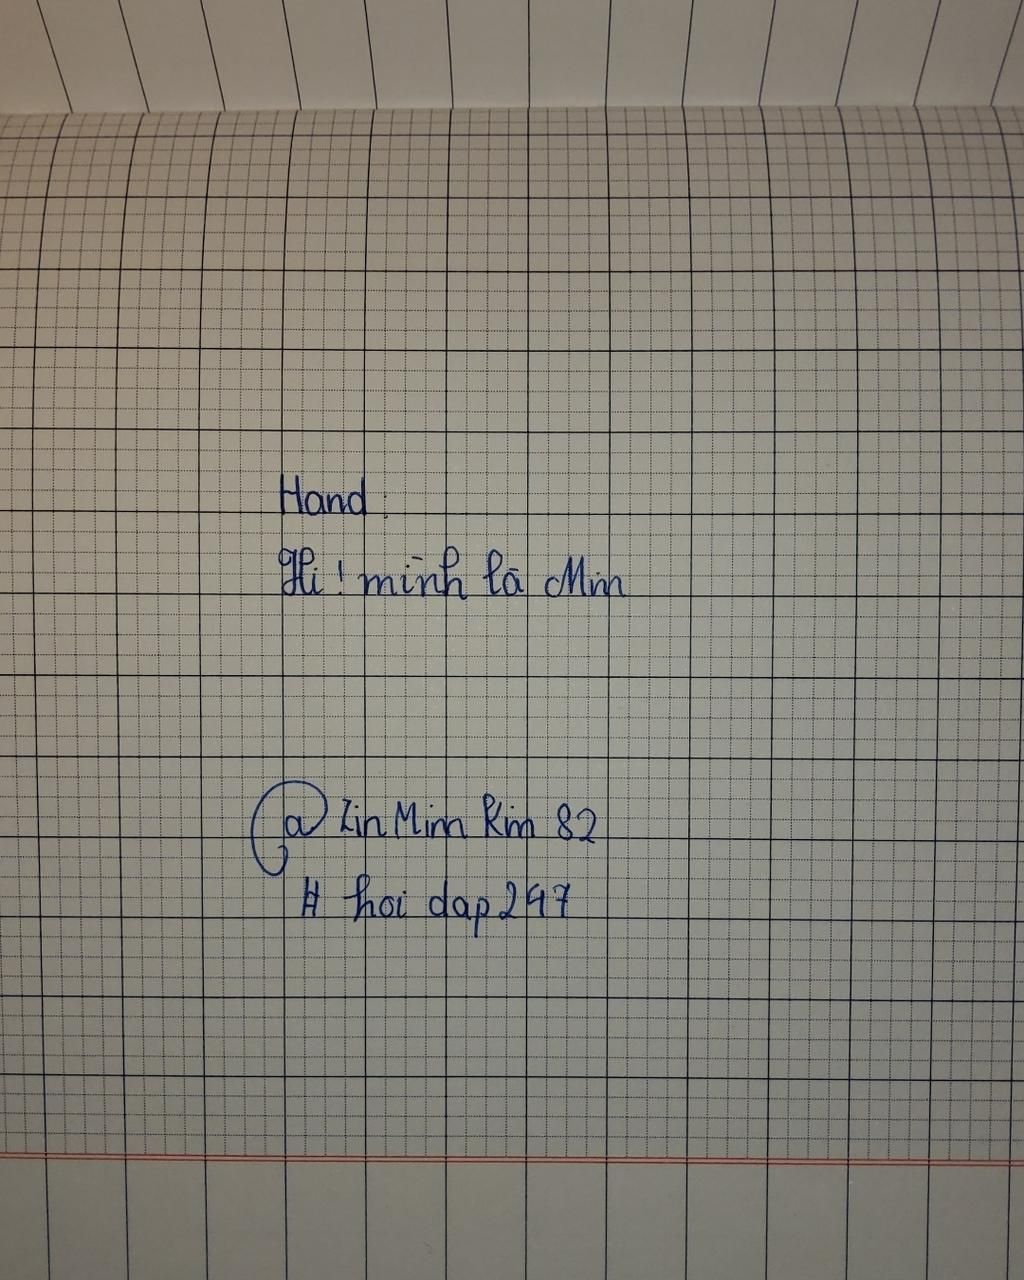 Hand:
Hi! mình là Min
@ZinMinn Kim 82
# hoi dap247